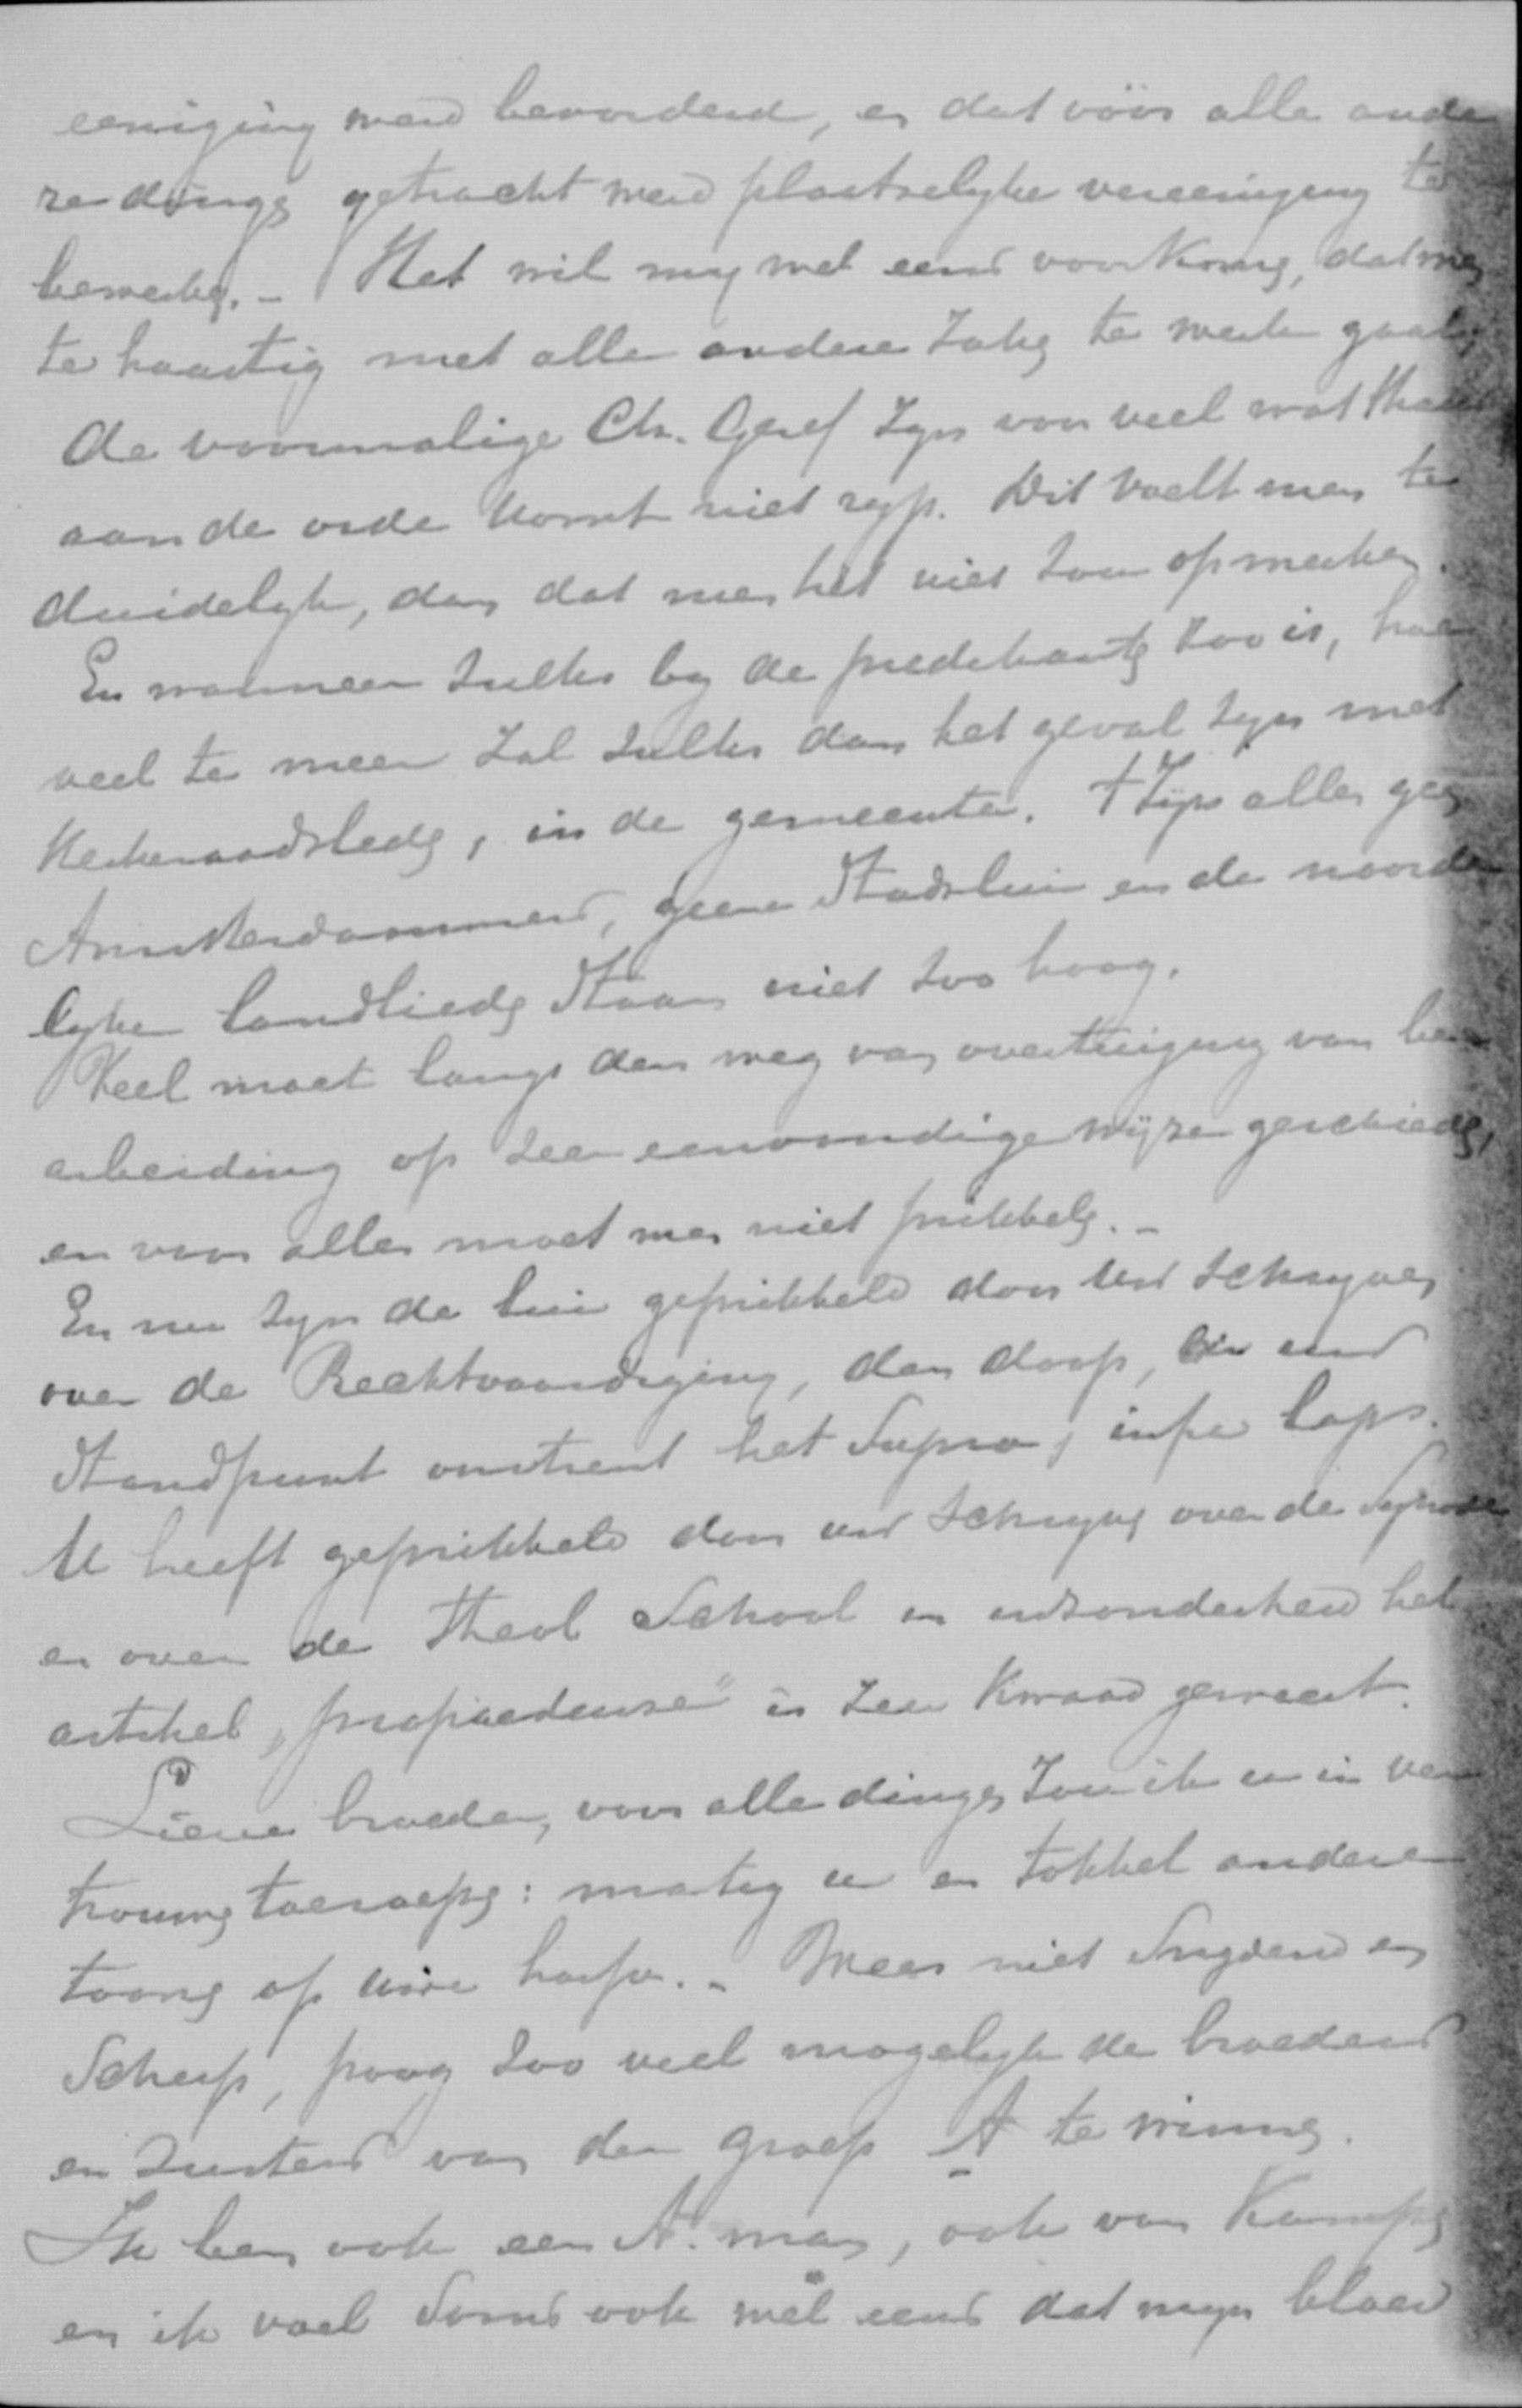 eeniging werd bevorderd, en dat vóór alle ande
re dingen getracht werd plaatselyke vereeniging te
bewerken. - Het wil my wel eens voorkomen, dat wy
te haastig met alle andere zaken te werk gaan
de voormalige Ch. Geref zyn voor veel wat thans
aan de orde komt niet ryp. Dit voelt men te
duidelyk, dan dat men het niet zou opmerken.
En wanneer zulks by de predikanten zoo is, hoe
veel te meer zal zulks dan het geval zyn met
Kerkeraadsleden, in de gemeente. 't Zijn alles geen
Amsterdammers, geene Stadslui en de noorde
lyke landlieden Staan niet zoo hoog.
Veel moet langs den weg van overtuiging van be
arbeiding op zeer eenvoudige wijze geschieden,
en voor alles moet men niet prikkelen. -
En nu zyn de lui geprikkeld door uw schryven
over de Rechtvaardiging, den doop, en uw
Standpunt omtrent het Supra, infra laps.
U heeft geprikkeld door uw schryven over de Synode
en over de Theol School en inzonderheid het
artikel „propaedeuse" is zeer kwaad geweest.
Lieve broeder, voor alle dingen zou ik u in ver
trouwen toeroepen: matig u en tokkel andere
toonen op uwe harp. - Wees niet Snydend en
Scherp, poog zoo veel mogelyk de broeders
en zusters van de groep A te winnen.
Ik ben ook een A. man, ook van Kampen
en ik voel Soms ook wel eens dat myn bloed